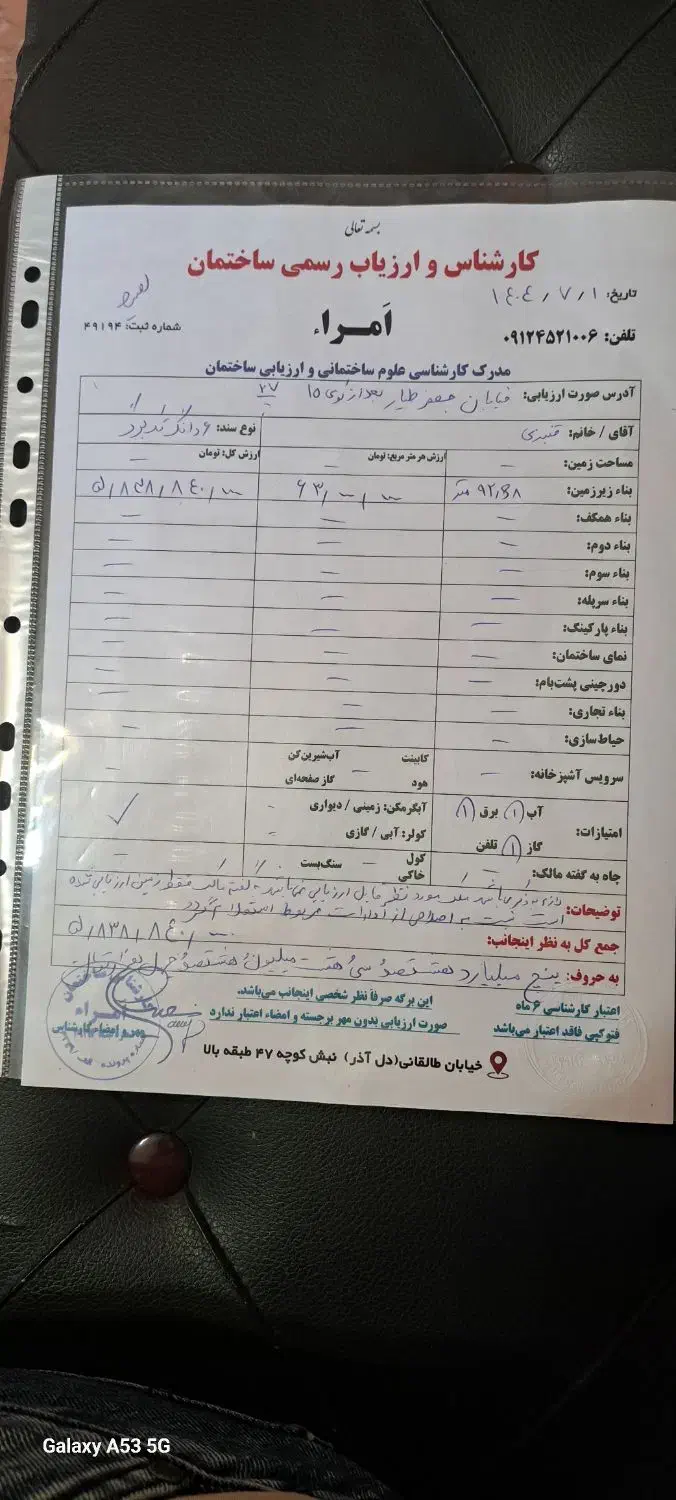 بسمه تعالی
کارشناس و ارزیاب رسمی ساختمان
تاریخ: ۱۴۰۴/۷/۱
اَمـراء
تلفن: ۰۹۱۲۴۵۲۱۰۰۶
شماره ثبت: ۴۹۱۹۴
مدرک کارشناسی علوم ساختمانی و ارزیابی ساختمان
آدرس صورت ارزیابی: خیابان جعفر طیار بعد از کوی ۱۵ ۲۷
آقای / خانم: قنبری نوع سند: ۶ دانگ
مساحت زمین: — ارزش هر متر مربع: تومان — ارزش کل: تومان —
بناء زیرزمین: متر ۶۳/۰۰۰/۰۰۰ ۵/۸۳۸/۸۴۰/۰۰۰
بناء همکف: — — —
بناء دوم: — — —
بناء سوم: — — —
بناء سرپله: — — —
بناء پارکینگ: — — —
نمای ساختمان: — — —
دورچینی پشت‌بام: — — —
بناء تجاری: — — —
حیاط‌سازی: — — —
سرویس آشپزخانه: — کابینت آب‌شیرین‌کن — —
هود گاز صفحه‌ای
امتیازات: آب (۱) برق (۱) آبگرمکن: زمینی / دیواری - ✓
گاز (۱) تلفن کولر: آبی / گازی -
چاه به گفته مالک: — کول — سنگ‌بست —
خاکی
توضیحات: لازم به ذکر می‌باشد ملک مورد نظر قابل ارزیابی به گفته مالک فقط زمین ارزیابی شده
است نسبت به اصلاحی از ادارات مربوط استعلام گردد
جمع کل به نظر اینجانب: ۵/۸۳۸/۸۴۰/۰۰۰
به حروف: پنج میلیارد هشتصد و سی و هشت میلیون و هشتصد و چهل هزار تومان
اعتبار کارشناسی ۶ ماه این برگه صرفاً نظر شخصی اینجانب می‌باشد.
فتوکپی فاقد اعتبار می‌باشد صورت ارزیابی بدون مهر برجسته و امضاء اعتبار ندارد مهر و امضاء کارشناس
امراء
خیابان طالقانی(دل آذر) نبش کوچه ۴۷ طبقه بالا
Galaxy A53 5G